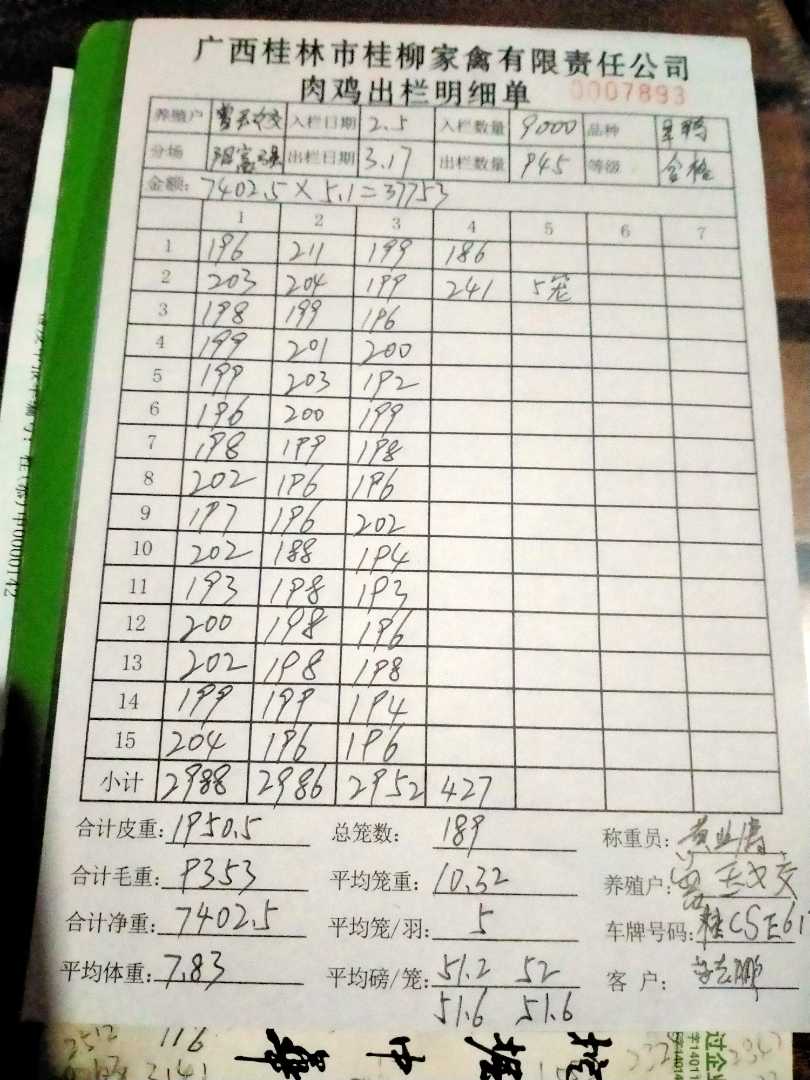 广西桂林市桂柳家禽有限责任公司
肉鸡出栏明细单 0007893
养殖户 入栏日期 2.5 入栏数量 9000 品种
分场 出栏日期 3.17 出栏数量 945 等级 合格
金额: 7402.5 × 5.1 = 37753
1 2 3 4 5 6 7
1 196 211 199 186
2 203 204 199 241 5笼
3 198 199 196
4 199 201 200
5 199 203 192
6 196 200 199
7 198 199 198
8 202 196 196
9 197 196 202
10 202 188 194
11 193 198 193
12 200 198 196
13 202 198 198
14 199 199 194
15 204 196 196
小计 2988 2986 2952 427
合计皮重: 1950.5 总笼数: 189 称重员:
合计毛重: 9353 平均笼重: 10.32 养殖户:
合计净重: 7402.5 平均笼/羽: 5 车牌号码: 桂CSE61
平均体重: 7.83 平均磅/笼: 51.2 52 客户:
51.6 51.6
2512 116
3141
中
过企业